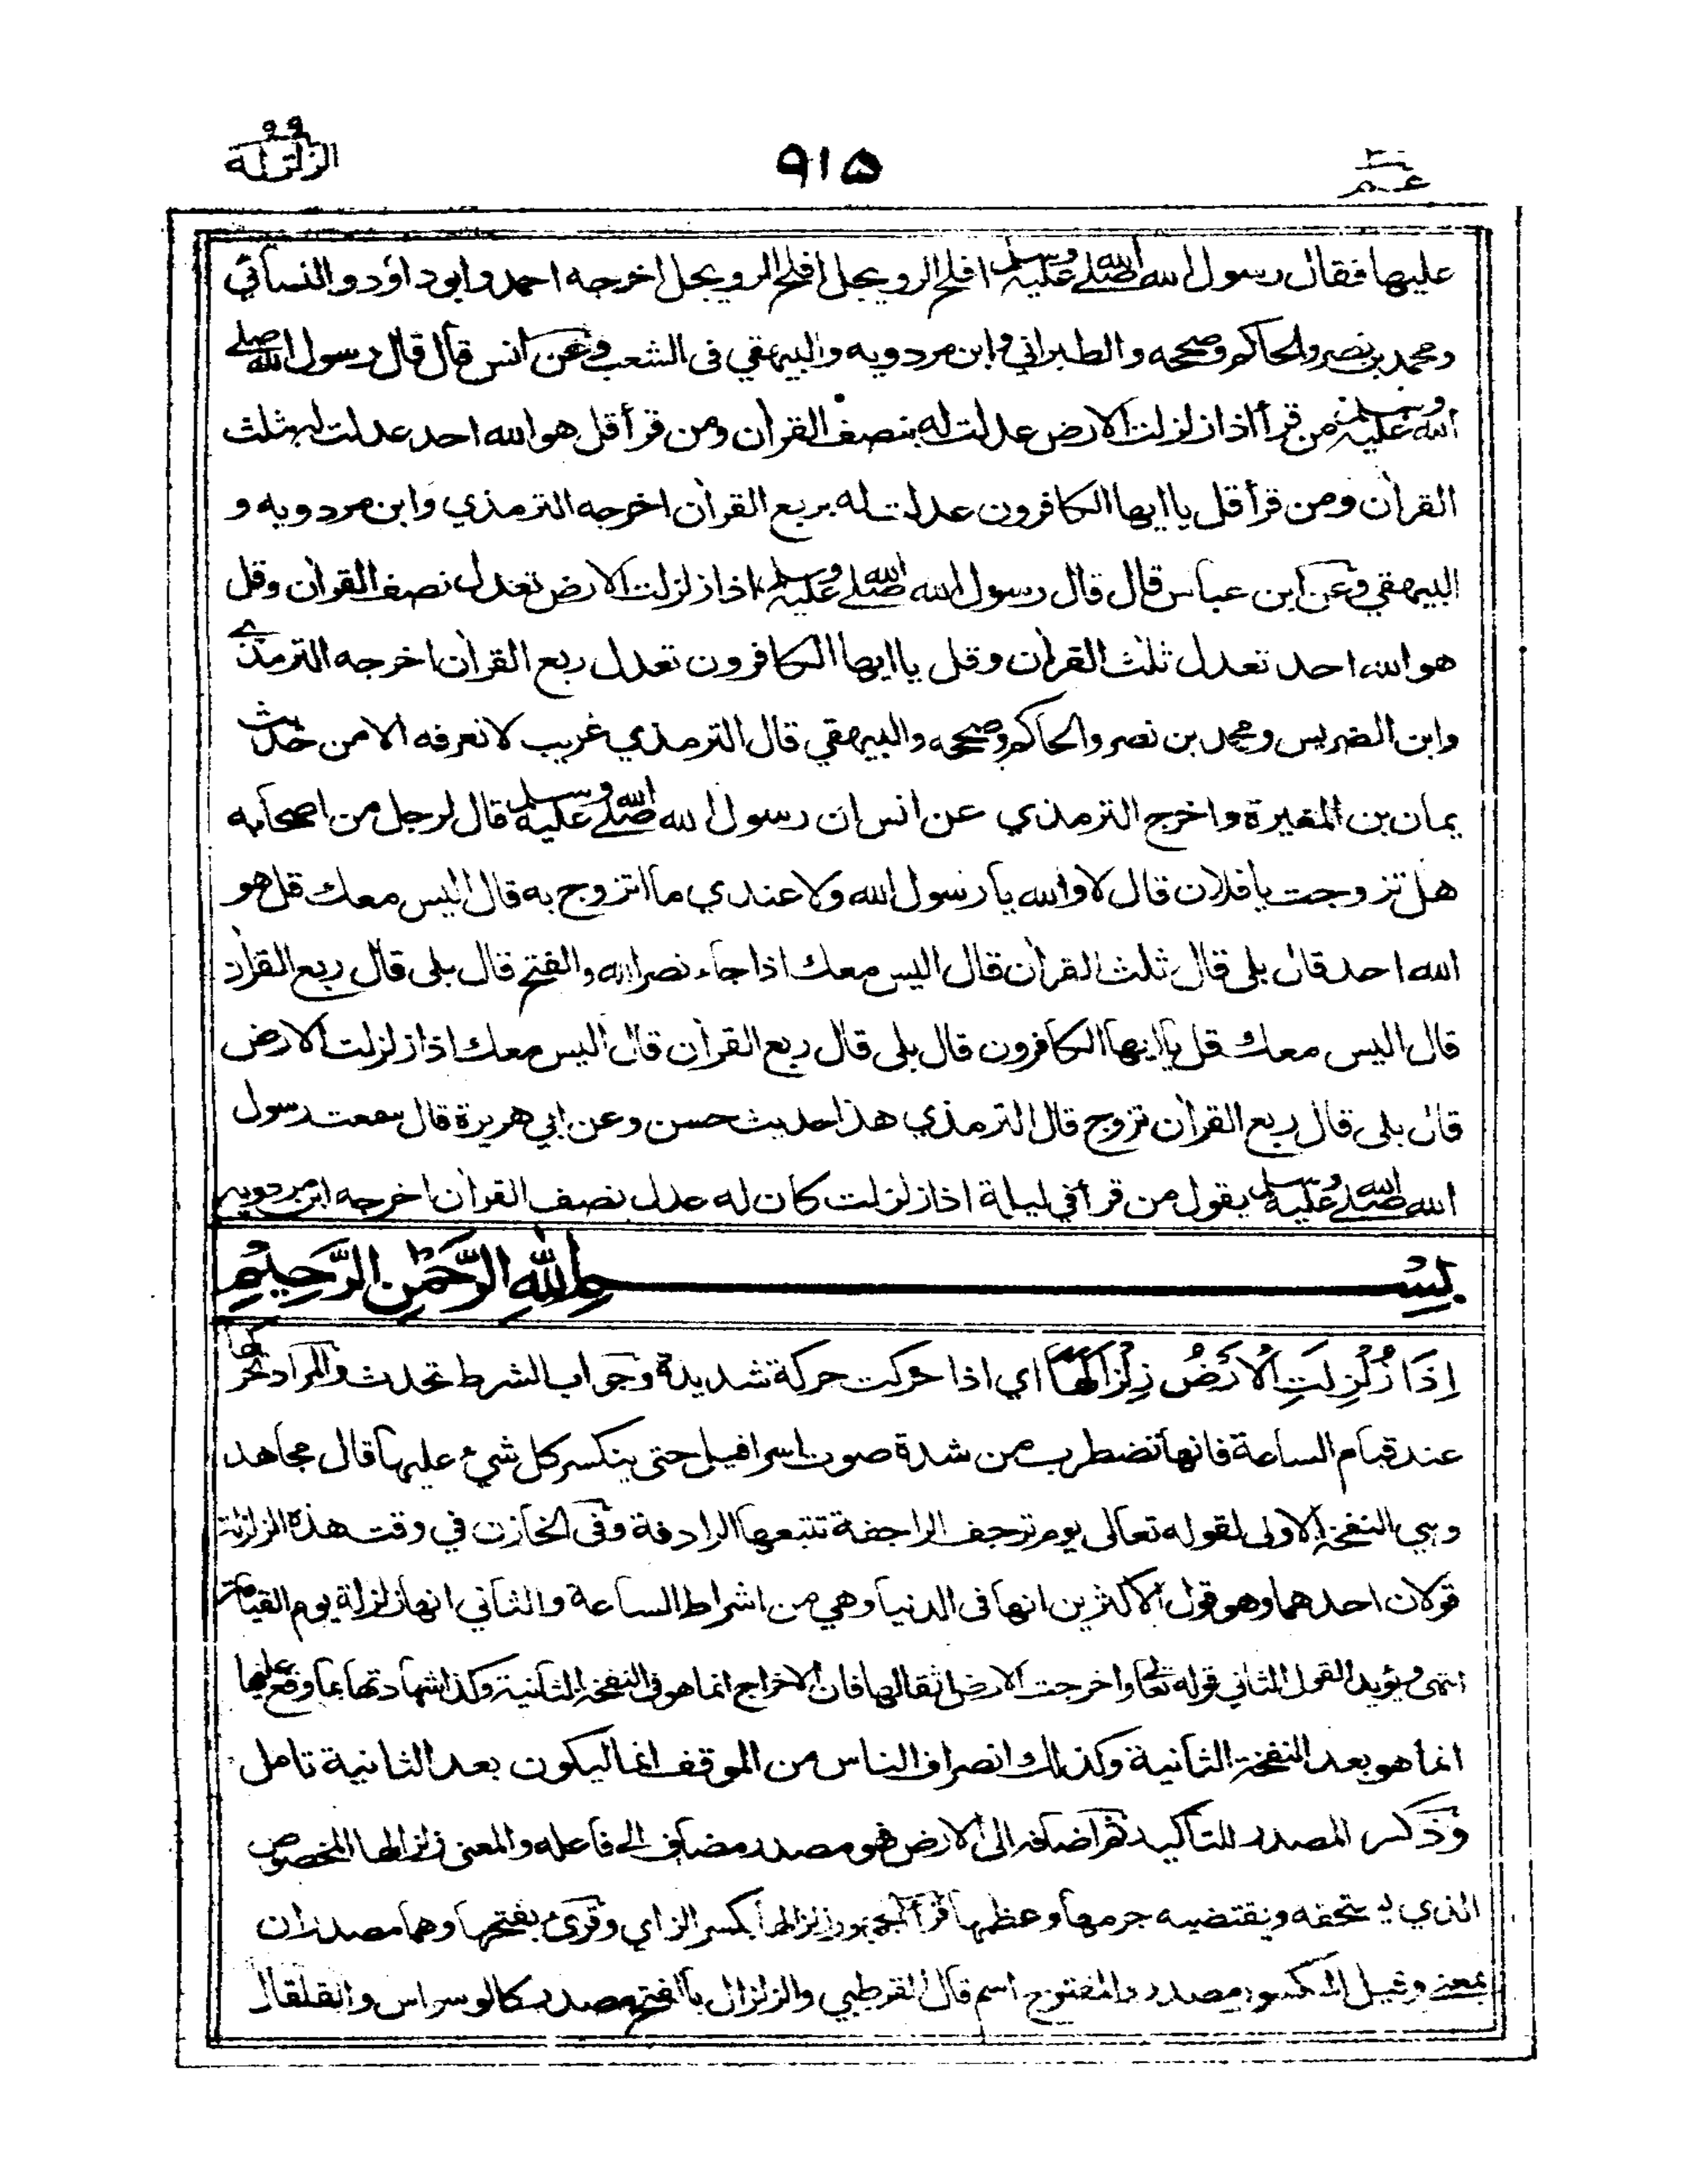 عم ٣٠ ٩١٥ الزلزلة ٩٩
عليها فقال رسول الله صلى الله عليه وسلم افلح الرويجل افلح الرويجل اخرجه احمد وابو داؤد والنسائي
ومحمد بن نصر والحاكم وصححه والطبراني وابن مردويه والبيهقي فى الشعب وعن انس قال قال رسول الله صلى
الله عليه وسلم من قرأ اذا زلزلت الارض عدلت له بنصف القرأن ومن قرأ قل هو الله احد عدلت له بثلث
القرأن ومن قرأ قل يا ايها الكافرون عدلت له بربع القرأن اخرجه الترمذي وابن مردويه و
البيهقي وعن ابن عباس قال قال رسول الله صلى الله عليه وسلم اذا زلزلت الارض تعدل نصف القرأن وقل
هو الله احد تعدل ثلث القرأن وقل يا ايها الكافرون تعدل ربع القرأن اخرجه الترمذي
وابن الضريس ومحمد بن نصر والحاكم وصححه والبيهقي قال الترمذي غريب لا نعرفه الا من حديث
يمان بن المغيرة واخرج الترمذي عن انس ان رسول الله صلى الله عليه وسلم قال لرجل من اصحابه
هل تزوجت يا فلان قال لا والله يا رسول الله ولا عندي ما اتزوج به قال اليس معك قل هو
الله احد قال بلى قال ثلث القرأن قال اليس معك اذا جاء نصر الله والفتح قال بلى قال ربع القرأن
قال اليس معك قل يا ايها الكافرون قال بلى قال ربع القرأن قال اليس معك اذا زلزلت الارض
قال بلى قال ربع القرأن تزوج قال الترمذي هذا حديث حسن وعن ابي هريرة قال سمعت رسول
الله صلى الله عليه وسلم يقول من قرأ في ليلة اذا زلزلت كان له عدل نصف القرأن اخرجه ابن مردويه
بِسْمِ اللهِ الرَّحْمٰنِ الرَّحِيْمِ
اِذَا زُلْزِلَتِ الْاَرْضُ زِلْزَالَهَا اي اذا حركت حركة شديدة وجواب الشرط تحدث والمراد تحركها
عند قيام الساعة فانها تضطرب من شدة صوت اسرافيل حتى ينكسر كل شيء عليها قال مجاهد
وهي النفخة الاولى لقوله تعالى يوم ترجف الراجفة تتبعها الرادفة وفى الخازن في وقت هذه الزلزلة
قولان احدهما وهو قول الاكثرين انها فى الدنيا وهي من اشراط الساعة والثاني انها زلزلة يوم القيامة
انتهى ويؤيد القول الثاني قوله تعالى واخرجت الارض اثقالها فان الاخراج انما هو فى النفخة الثانية وكذا شهادتها بما وقع عليها
انما هو بعد النفخة الثانية وكذلك انصراف الناس من الموقف انما ليكون بعد الثانية تامل
وذكر المصدر للتاكيد ثم اضافه الى الارض فهو مصدر مضاف الى فاعله والمعنى زلزالها المخصوص
الذي يستحقه ويقتضيه جرمها وعظمها قرأ الجمهور زلزالها بكسر الزاي وقرئ بفتحها وهما مصدران
بمعنى وقيل المكسور مصدر والمفتوح اسم قال القرطبي والزلزال بالفتح مصدر كالوسواس والقلقال